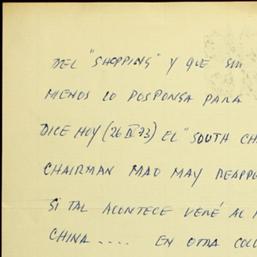 DEL "SHOPPING" Y QUE SIN
MENOS LO POSPONGA PARA
DICE HOY (26 IX 73) EL "SOUTH CH
CHAIRMAN MAO MAY REAPP
SI TAL ACONTECE VERÉ AL
CHINA .... EN OTRA COL